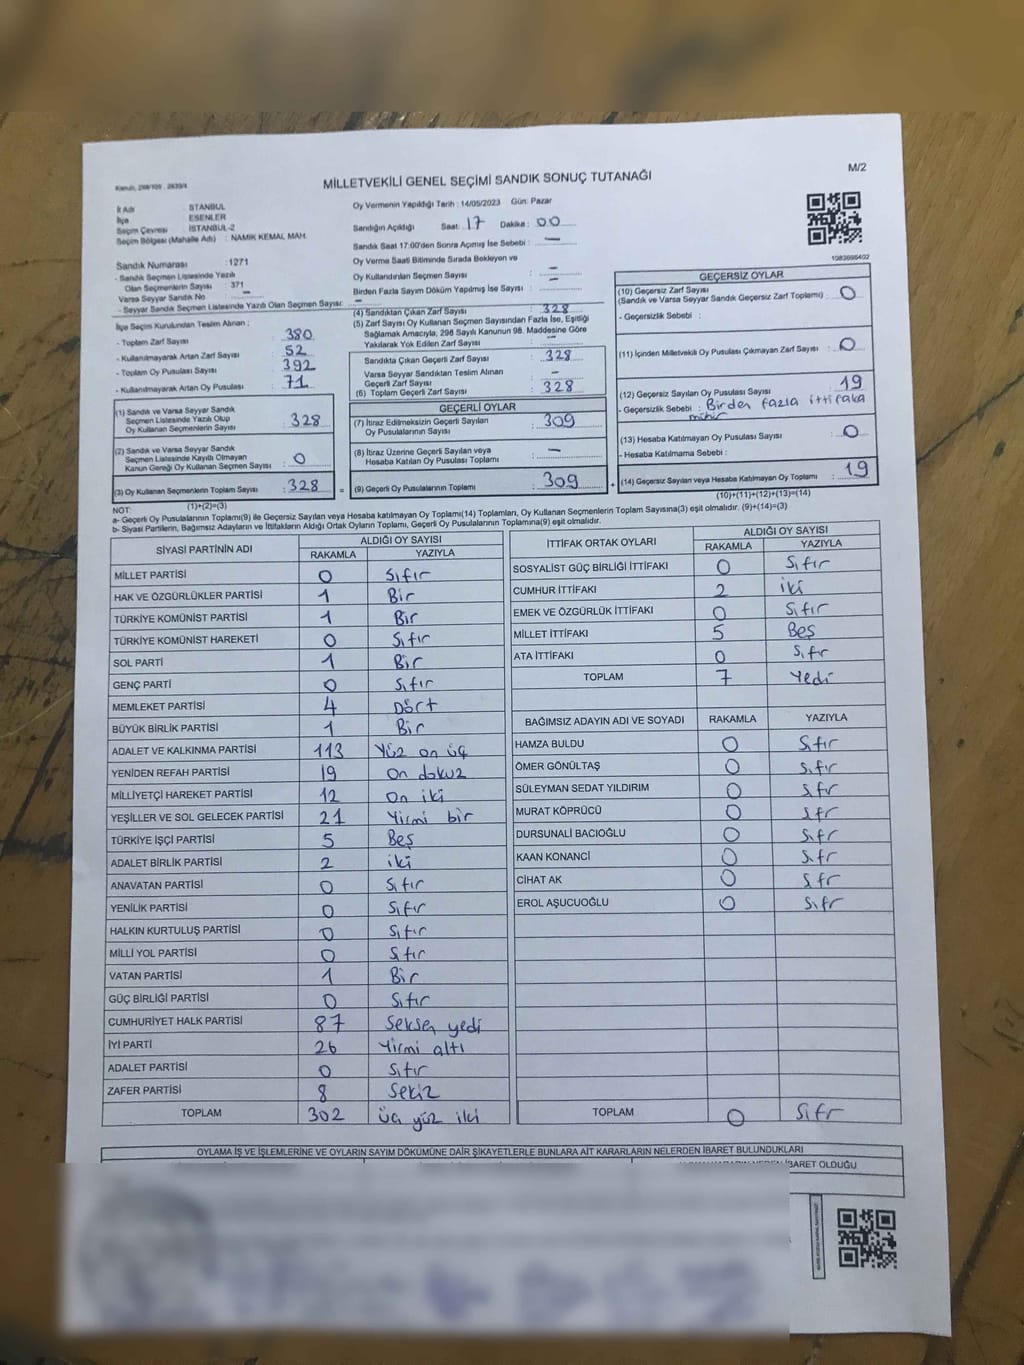 Kanun, 298/109 , 2839/4
M/2
MİLLETVEKİLİ GENEL SEÇİMİ SANDIK SONUÇ TUTANAĞI
İl Adı : İSTANBUL
İlçe : ESENLER
Seçim Çevresi : İSTANBUL-2
Seçim Bölgesi (Mahalle Adı) : NAMIK KEMAL MAH.
Sandık Numarası : 1271
- Sandık Seçmen Listesinde Yazılı
Olan Seçmenlerin Sayısı : 371
Varsa Seyyar Sandık No : —
- Seyyar Sandık Seçmen Listesinde Yazılı Olan Seçmen Sayısı: —
Oy Vermenin Yapıldığı Tarih : 14/05/2023 Gün: Pazar
Sandığın Açıldığı Saat: 17 Dakika : 00
Sandık Saat 17:00'den Sonra Açılmış İse Sebebi : —
Oy Verme Saati Bitiminde Sırada Bekleyen ve
Oy Kullandırılan Seçmen Sayısı : —
Birden Fazla Sayım Döküm Yapılmış İse Sayısı : —
İlçe Seçim Kurulundan Teslim Alınan :
- Toplam Zarf Sayısı : 380
- Kullanılmayarak Artan Zarf Sayısı : 52
- Toplam Oy Pusulası Sayısı : 392
- Kullanılmayarak Artan Oy Pusulası : 71
(1) Sandık ve Varsa Seyyar Sandık
Seçmen Listesinde Yazılı Olup
Oy Kullanan Seçmenlerin Sayısı : 328
(2) Sandık ve Varsa Seyyar Sandık
Seçmen Listesinde Kayıtlı Olmayan
Kanun Gereği Oy Kullanan Seçmen Sayısı : 0
(3) Oy Kullanan Seçmenlerin Toplam Sayısı : 328
(1)+(2)=(3)
(4) Sandıktan Çıkan Zarf Sayısı : 328
(5) Zarf Sayısı Oy Kullanan Seçmen Sayısından Fazla İse, Eşitliği
Sağlamak Amacıyla, 298 Sayılı Kanunun 98. Maddesine Göre
Yakılarak Yok Edilen Zarf Sayısı : —
Sandıkta Çıkan Geçerli Zarf Sayısı : 328
Varsa Seyyar Sandıktan Teslim Alınan
Geçerli Zarf Sayısı : —
(6) Toplam Geçerli Zarf Sayısı : 328
GEÇERLİ OYLAR
(7) İtiraz Edilmeksizin Geçerli Sayılan
Oy Pusulalarının Sayısı : 309
(8) İtiraz Üzerine Geçerli Sayılan veya
Hesaba Katılan Oy Pusulası Toplamı : —
= (9) Geçerli Oy Pusulalarının Toplamı : 309
GEÇERSİZ OYLAR
(10) Geçersiz Zarf Sayısı
(Sandık ve Varsa Seyyar Sandık Geçersiz Zarf Toplamı) : 0
- Geçersizlik Sebebi :
(11) İçinden Milletvekili Oy Pusulası Çıkmayan Zarf Sayısı : 0
(12) Geçersiz Sayılan Oy Pusulası Sayısı : 19
- Geçersizlik Sebebi : Birden fazla ittifaka
mühür
(13) Hesaba Katılmayan Oy Pusulası Sayısı : 0
- Hesaba Katılmama Sebebi :
+ (14) Geçersiz Sayılan veya Hesaba Katılmayan Oy Toplamı : 19
(10)+(11)+(12)+(13)=(14)
NOT:
a- Geçerli Oy Pusulaları Toplamı(9) ile Geçersiz Sayılan veya Hesaba katılmayan Oy Toplamı(14) Toplamları, Oy Kullanan Seçmenlerin Toplam Sayısına(3) eşit olmalıdır. (9)+(14)=(3)
b- Siyasi Partilerin, Bağımsız Adayların ve İttifakların Aldığı Ortak Oyların Toplamı, Geçerli Oy Pusulalarının Toplamına(9) eşit olmalıdır.
SİYASİ PARTİNİN ADI ALDIĞI OY SAYISI
RAKAMLA YAZIYLA
MİLLET PARTİSİ 0 Sıfır
HAK VE ÖZGÜRLÜKLER PARTİSİ 1 Bir
TÜRKİYE KOMÜNİST PARTİSİ 1 Bir
TÜRKİYE KOMÜNİST HAREKETİ 0 Sıfır
SOL PARTİ 1 Bir
GENÇ PARTİ 0 Sıfır
MEMLEKET PARTİSİ 4 Dört
BÜYÜK BİRLİK PARTİSİ 1 Bir
ADALET VE KALKINMA PARTİSİ 113 Yüz on üç
YENİDEN REFAH PARTİSİ 19 On dokuz
MİLLİYETÇİ HAREKET PARTİSİ 12 On iki
YEŞİLLER VE SOL GELECEK PARTİSİ 21 Yirmi bir
TÜRKİYE İŞÇİ PARTİSİ 5 Beş
ADALET BİRLİK PARTİSİ 2 iki
ANAVATAN PARTİSİ 0 Sıfır
YENİLİK PARTİSİ 0 Sıfır
HALKIN KURTULUŞ PARTİSİ 0 Sıfır
MİLLİ YOL PARTİSİ 0 Sıfır
VATAN PARTİSİ 1 Bir
GÜÇ BİRLİĞİ PARTİSİ 0 Sıfır
CUMHURİYET HALK PARTİSİ 87 Seksen yedi
İYİ PARTİ 26 Yirmi altı
ADALET PARTİSİ 0 Sıfır
ZAFER PARTİSİ 8 Sekiz
TOPLAM 302 üç yüz iki
İTTİFAK ORTAK OYLARI ALDIĞI OY SAYISI
RAKAMLA YAZIYLA
SOSYALİST GÜÇ BİRLİĞİ İTTİFAKI 0 Sıfır
CUMHUR İTTİFAKI 2 iki
EMEK VE ÖZGÜRLÜK İTTİFAKI 0 Sıfır
MİLLET İTTİFAKI 5 Beş
ATA İTTİFAKI 0 Sıfır
TOPLAM 7 Yedi
BAĞIMSIZ ADAYIN ADI VE SOYADI RAKAMLA YAZIYLA
HAMZA BULDU 0 Sıfır
ÖMER GÖNÜLTAŞ 0 Sıfır
SÜLEYMAN SEDAT YILDIRIM 0 Sıfır
MURAT KÖPRÜCÜ 0 Sıfır
DURSUNALİ BACIOĞLU 0 Sıfır
KAAN KONANCİ 0 Sıfır
CİHAT AK 0 Sıfır
EROL AŞUCUOĞLU 0 Sıfır
TOPLAM 0 Sıfır
OYLAMA İŞ VE İŞLEMLERİNE VE OYLARIN SAYIM DÖKÜMÜNE DAİR ŞİKAYETLERLE BUNLARA AİT KARARLARIN NELERDEN İBARET BULUNDUKLARI
İBARET OLDUĞU